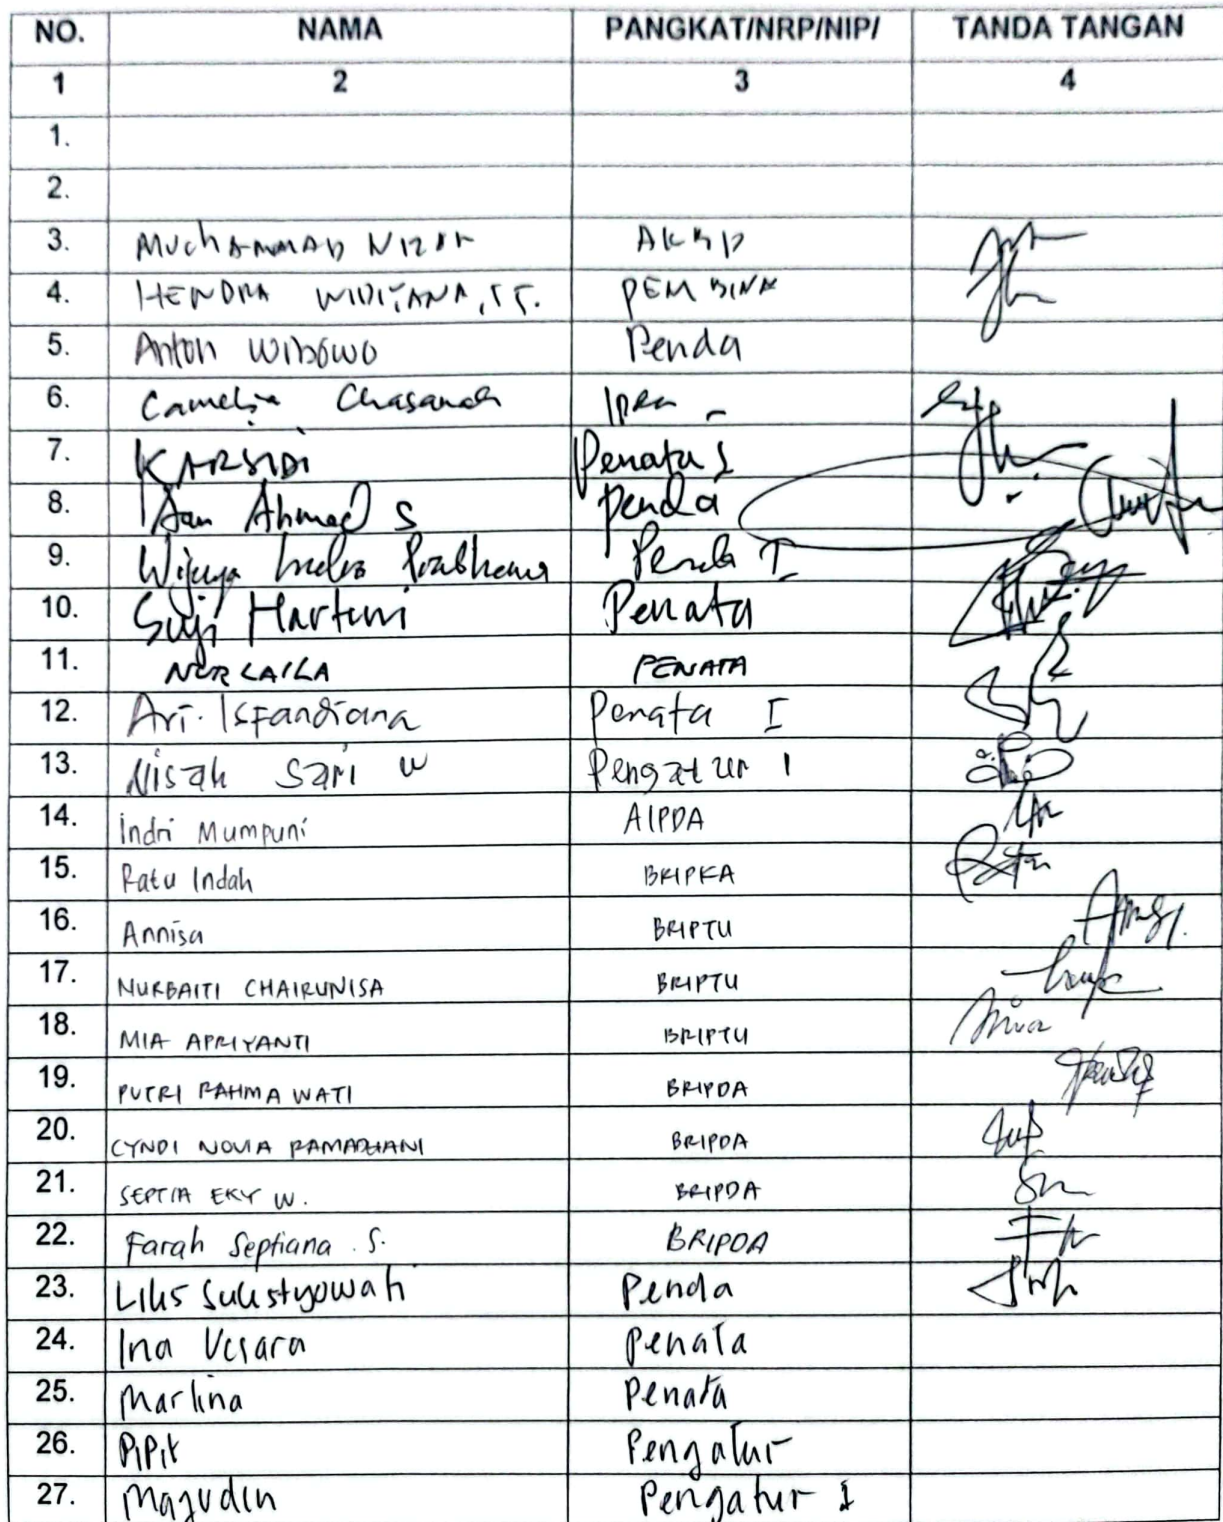 NO. NAMA PANGKAT/NRP/NIP/ TANDA TANGAN
1 2 3 4
1.
2.
3. MUCHAMMAD NIZAR AKBP
4. HENDRA WIDIYANA, PEMBINA
5. Anton Wibowo Penda
6. Camelia Chasanah
7. KARSIDI Penata I
8. Aan Ahmad S Penda
9. Wijaya Penda I
10. Suji Hartini Penata
11. NURLAILA PENATA
12. Ari. Isfandiana Penata I
13. Nisah Sari W Pengatur 1
14. Indri Mumpuni AIPDA
15. Ratu Indah BRIPKA
16. Annisa BRIPTU
17. NURBAITI CHAIRUNISA BRIPTU
18. MIA APRIYANTI BRIPTU
19. PUTRI RAHMA WATI BRIPDA
20. CYNDI NOVIA RAMADHANI BRIPDA
21. SEPTIA EKY W. BRIPDA
22. Farah Septiana . S. BRIPDA
23. Lilis Sulistyowati Penda
24. Ina Penata
25. Marlina Penata
26. PIPit Pengatur
27. Mazudin Pengatur I